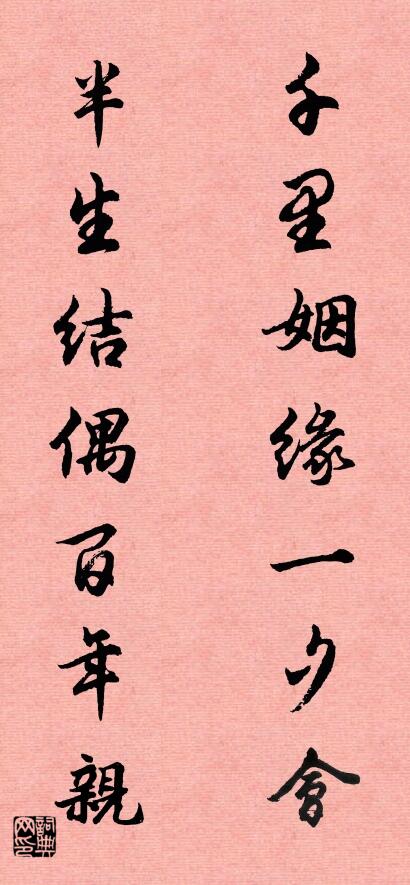 千里姻缘一夕會
半生结偶百年親
詞典网印